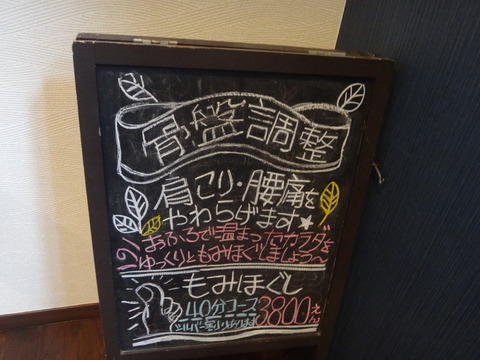 骨盤調整
肩こり・腰痛を
やわらげます★
おふろで温まったカラダを
ゆっくりともみほぐしましょう〜
もみほぐし
40分コース
3800えん